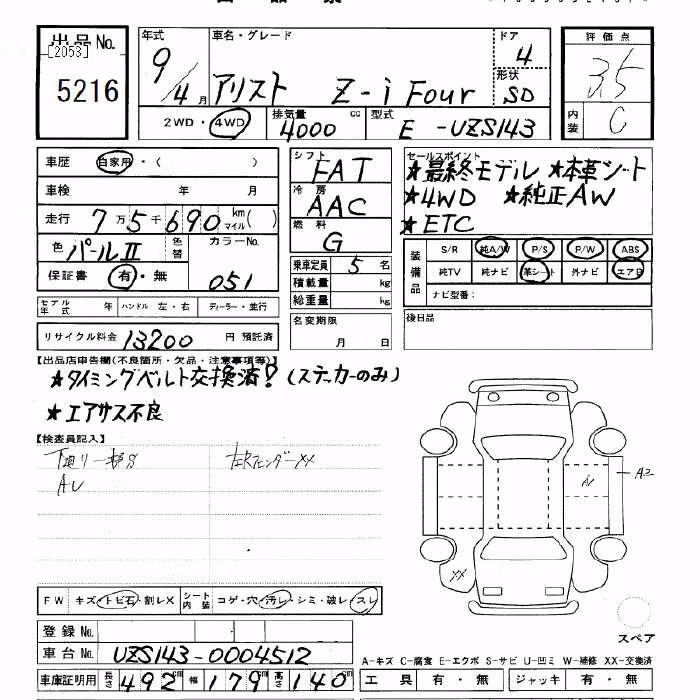 出品No.
[2053]
5216
年式 9/4月
車名・グレード アリスト Z-i Four
ドア 4
形状 SD
2WD・4WD
排気量 4000 cc
型式 E-UZS143
評価点 3.5
内装 C
車歴 自家用・( )
車検 年 月
走行 7万5千690km マイル( )
色 パールⅡ 色替 カラーNo. 051
保証書 有・無
モデル年式 年 ハンドル 左・右 ディーラー・並行
リサイクル料金 13200 円 預託済
シフト FAT
冷房 AAC
燃料 G
乗車定員 5名
積載量 kg
総重量 kg
名変期限 月 日
セールスポイント
★最終モデル ★本革シート
★4WD ★純正AW
★ETC
装備品 S/R 純A/W P/S P/W ABS
純TV 純ナビ 革シート 外ナビ エアB
ナビ型番:
後日品
【出品店申告欄(不良箇所・欠品・注意事項等)】
★タイミングベルト交換済?(ステッカーのみ)
★エアサス不良
【検査員記入】
下廻り一部S 左Rフェンダー××
AU
A1
A2
XX
FW キズ・トビ石・割レX シート内装 コゲ・穴・汚レ・シミ・破レ・スレ
登録No.
車台No. UZS143-0004512
車庫証明用 長さ 492cm 幅 179cm 高さ 140cm
スペア
A-キズ C-腐食 E-エクボ S-サビ U-凹ミ W-補修 XX-交換済
工具 有・無 ジャッキ 有・無